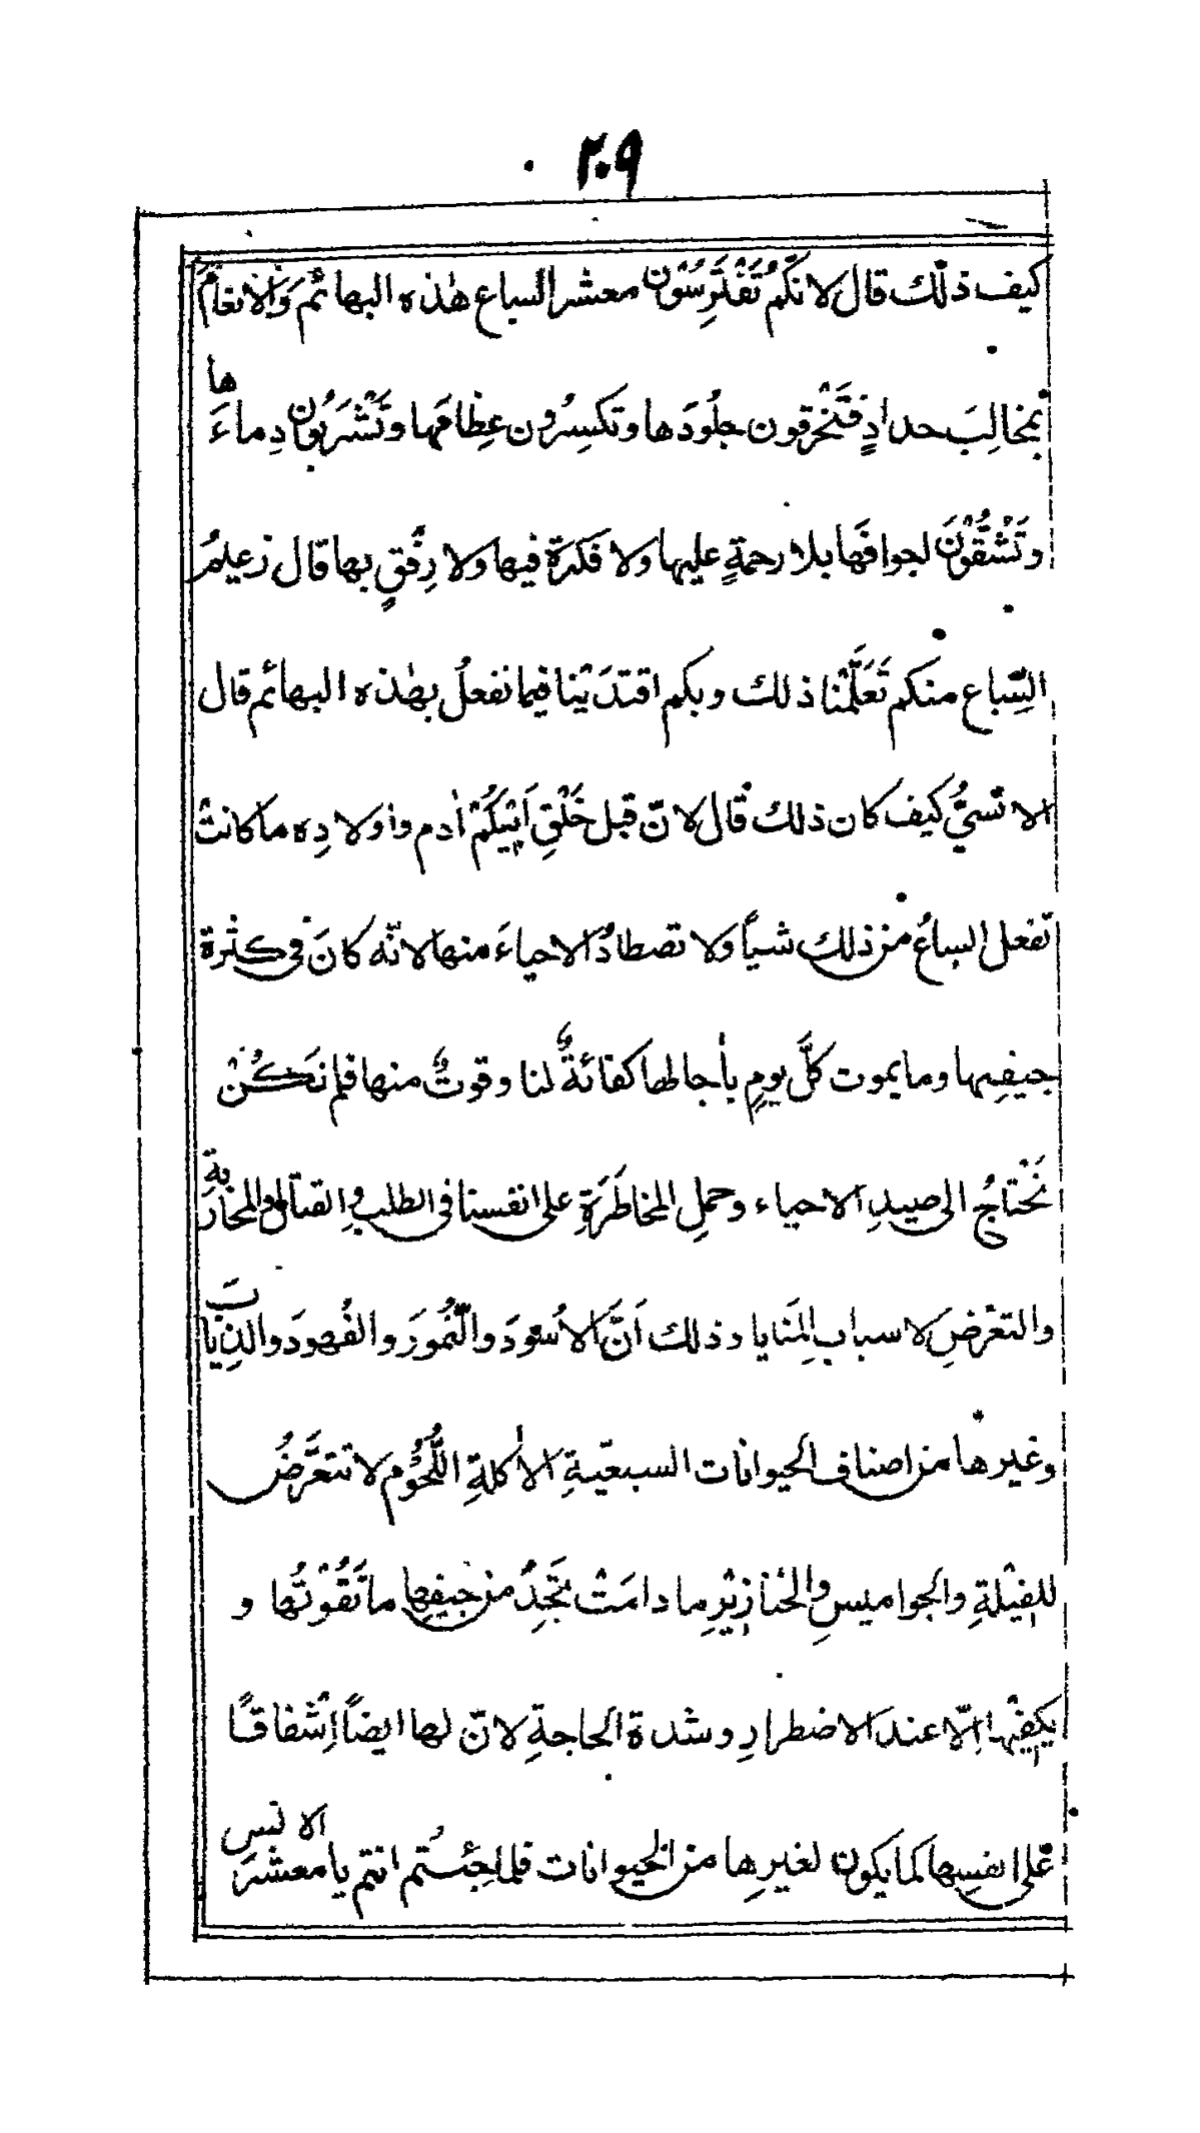 ٢٠٩
كيف ذلك قال لانّكُم تَفْتَرِسُوْن معشر السباع هٰذه البهائم وَالانعامَ
بمخالِبَ حدادٍ فتَخْرقون جلُودَها وتكسِرُون عِظامَها وتَشْرَبُون دِماءَها
وتَشُقُّوْنَ لجوافَها بلا رحمةٍ عليها ولا فكرة فيها ولا رِفْقٍ بها قال زعيمُ
السِّباع منكم تَعَلَّمْنا ذلك وبكم اقتدَيْنا فيما نفعلُ بهٰذه البهائم قال
الانسيُّ كيف كان ذلك قال لانّ قبل خَلْقِ اَبِيْكُمْ اٰدم واولادِه ما كانتْ
تفعل السباعُ من ذلك شيأً ولا تصطادُ الاحياءَ منها لانّه كانَ فى كثرة
جيفِها وما يموت كلَّ يومٍ بأجالها كفائةٌ لنا وقوتٌ منها فلم نَكُنْ
نَحْتاجُ الى صيدِ الاحياء وحملِ المخاطَرَةِ على انفسنا فى الطلب والقتال والمحارَبةِ
والتعْرضِ لاسباب المَنايا وذلك اَنَّ الاُسودَ والنُّمورَ والفُهودَ والذِيابَ
وغيرها من اصناف الحيوانات السبعيّةِ الاٰكلةِ اللُّحُوْم لا تتعرَّضُ
للفِيْلةِ والجواميسِ والخنازِيْرِ ما دامَتْ تَجِدُ من جيفِها ما تَقُوْتُها و
يكفِيْها اِلّا عندَ الاضطرارِ وشدة الحاجةِ لانّ لها ايضاً اِشْفاقًا
على انفسِها كما يكون لغيرِها من الحيوانات فلما جئتُم انتم يا معشرَ الانس